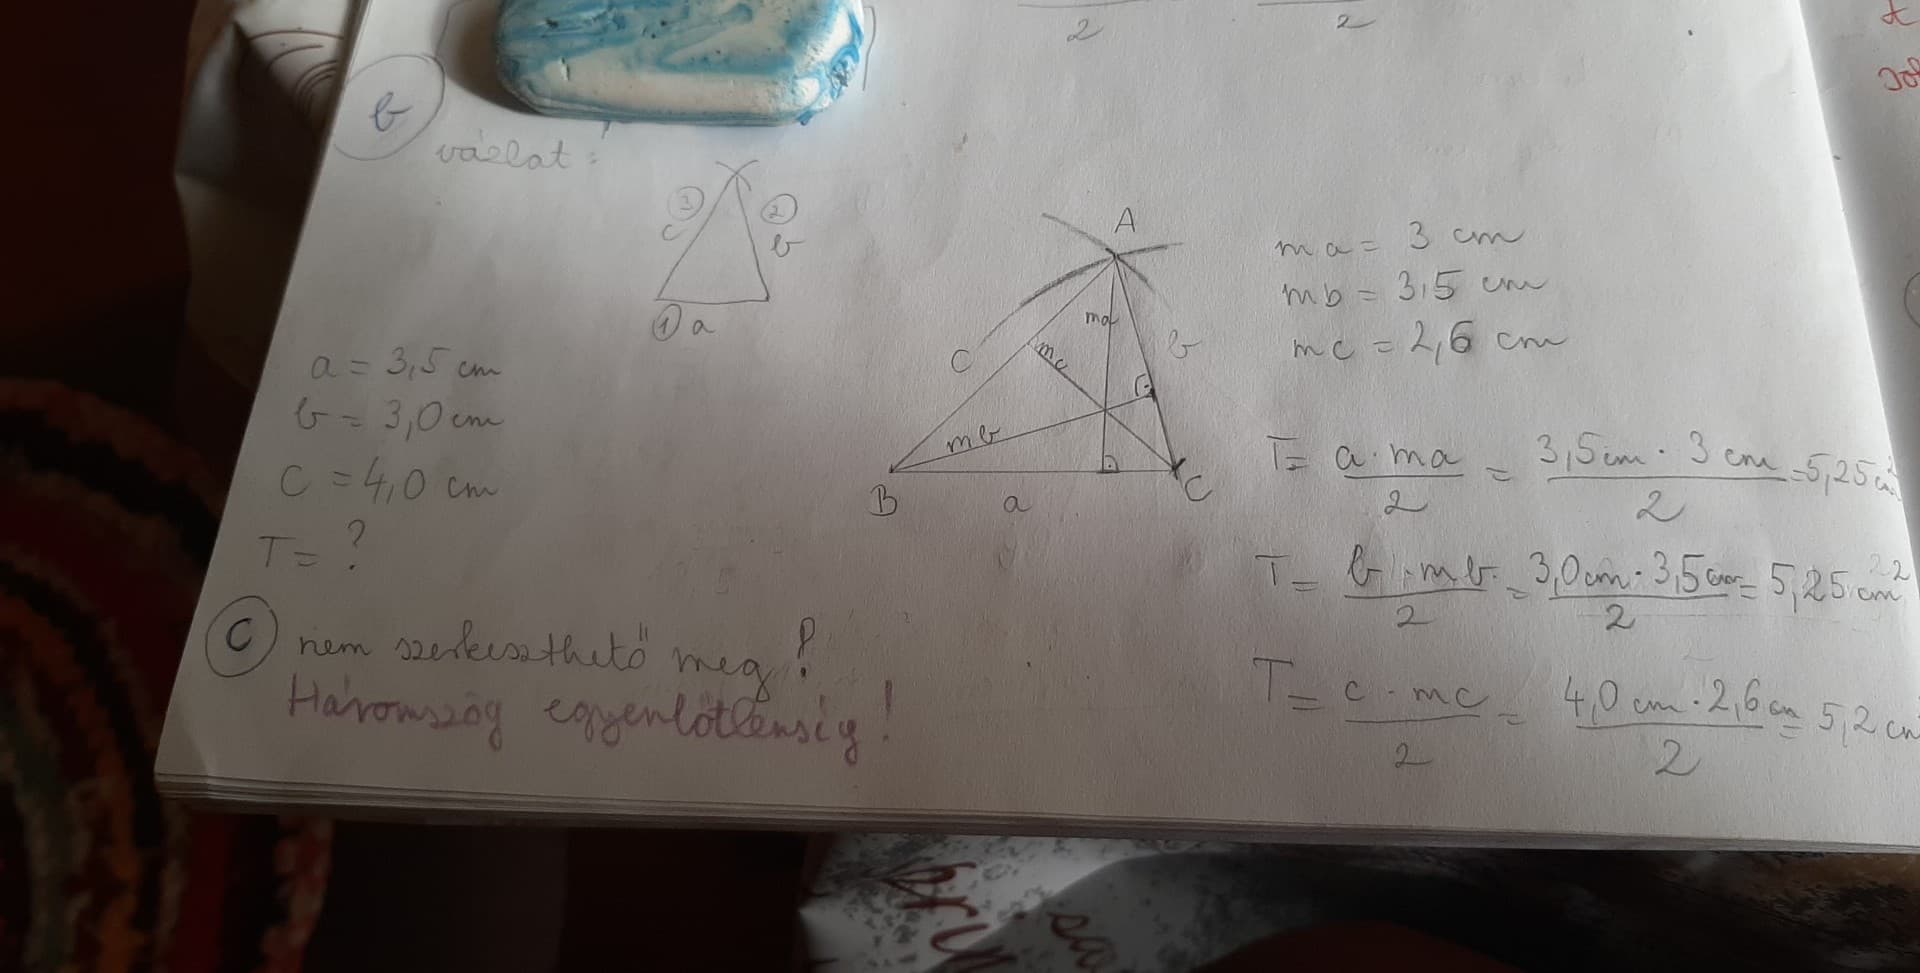 2
2
b
vázlat:
3
c
2
b
1 a
a = 3,5 cm
b = 3,0 cm
c = 4,0 cm
T = ?
A
ma
mc
c
b
mb
B
a
C
ma = 3 cm
mb = 3,5 cm
mc = 2,6 cm
T = a · ma / 2 = 3,5 cm · 3 cm / 2 = 5,25 cm²
T = b · mb / 2 = 3,0 cm · 3,5 cm / 2 = 5,25 cm²
T = c · mc / 2 = 4,0 cm · 2,6 cm / 2 = 5,2 cm
C nem szerkeszthető meg!
Háromszög egyenlőtlenség!